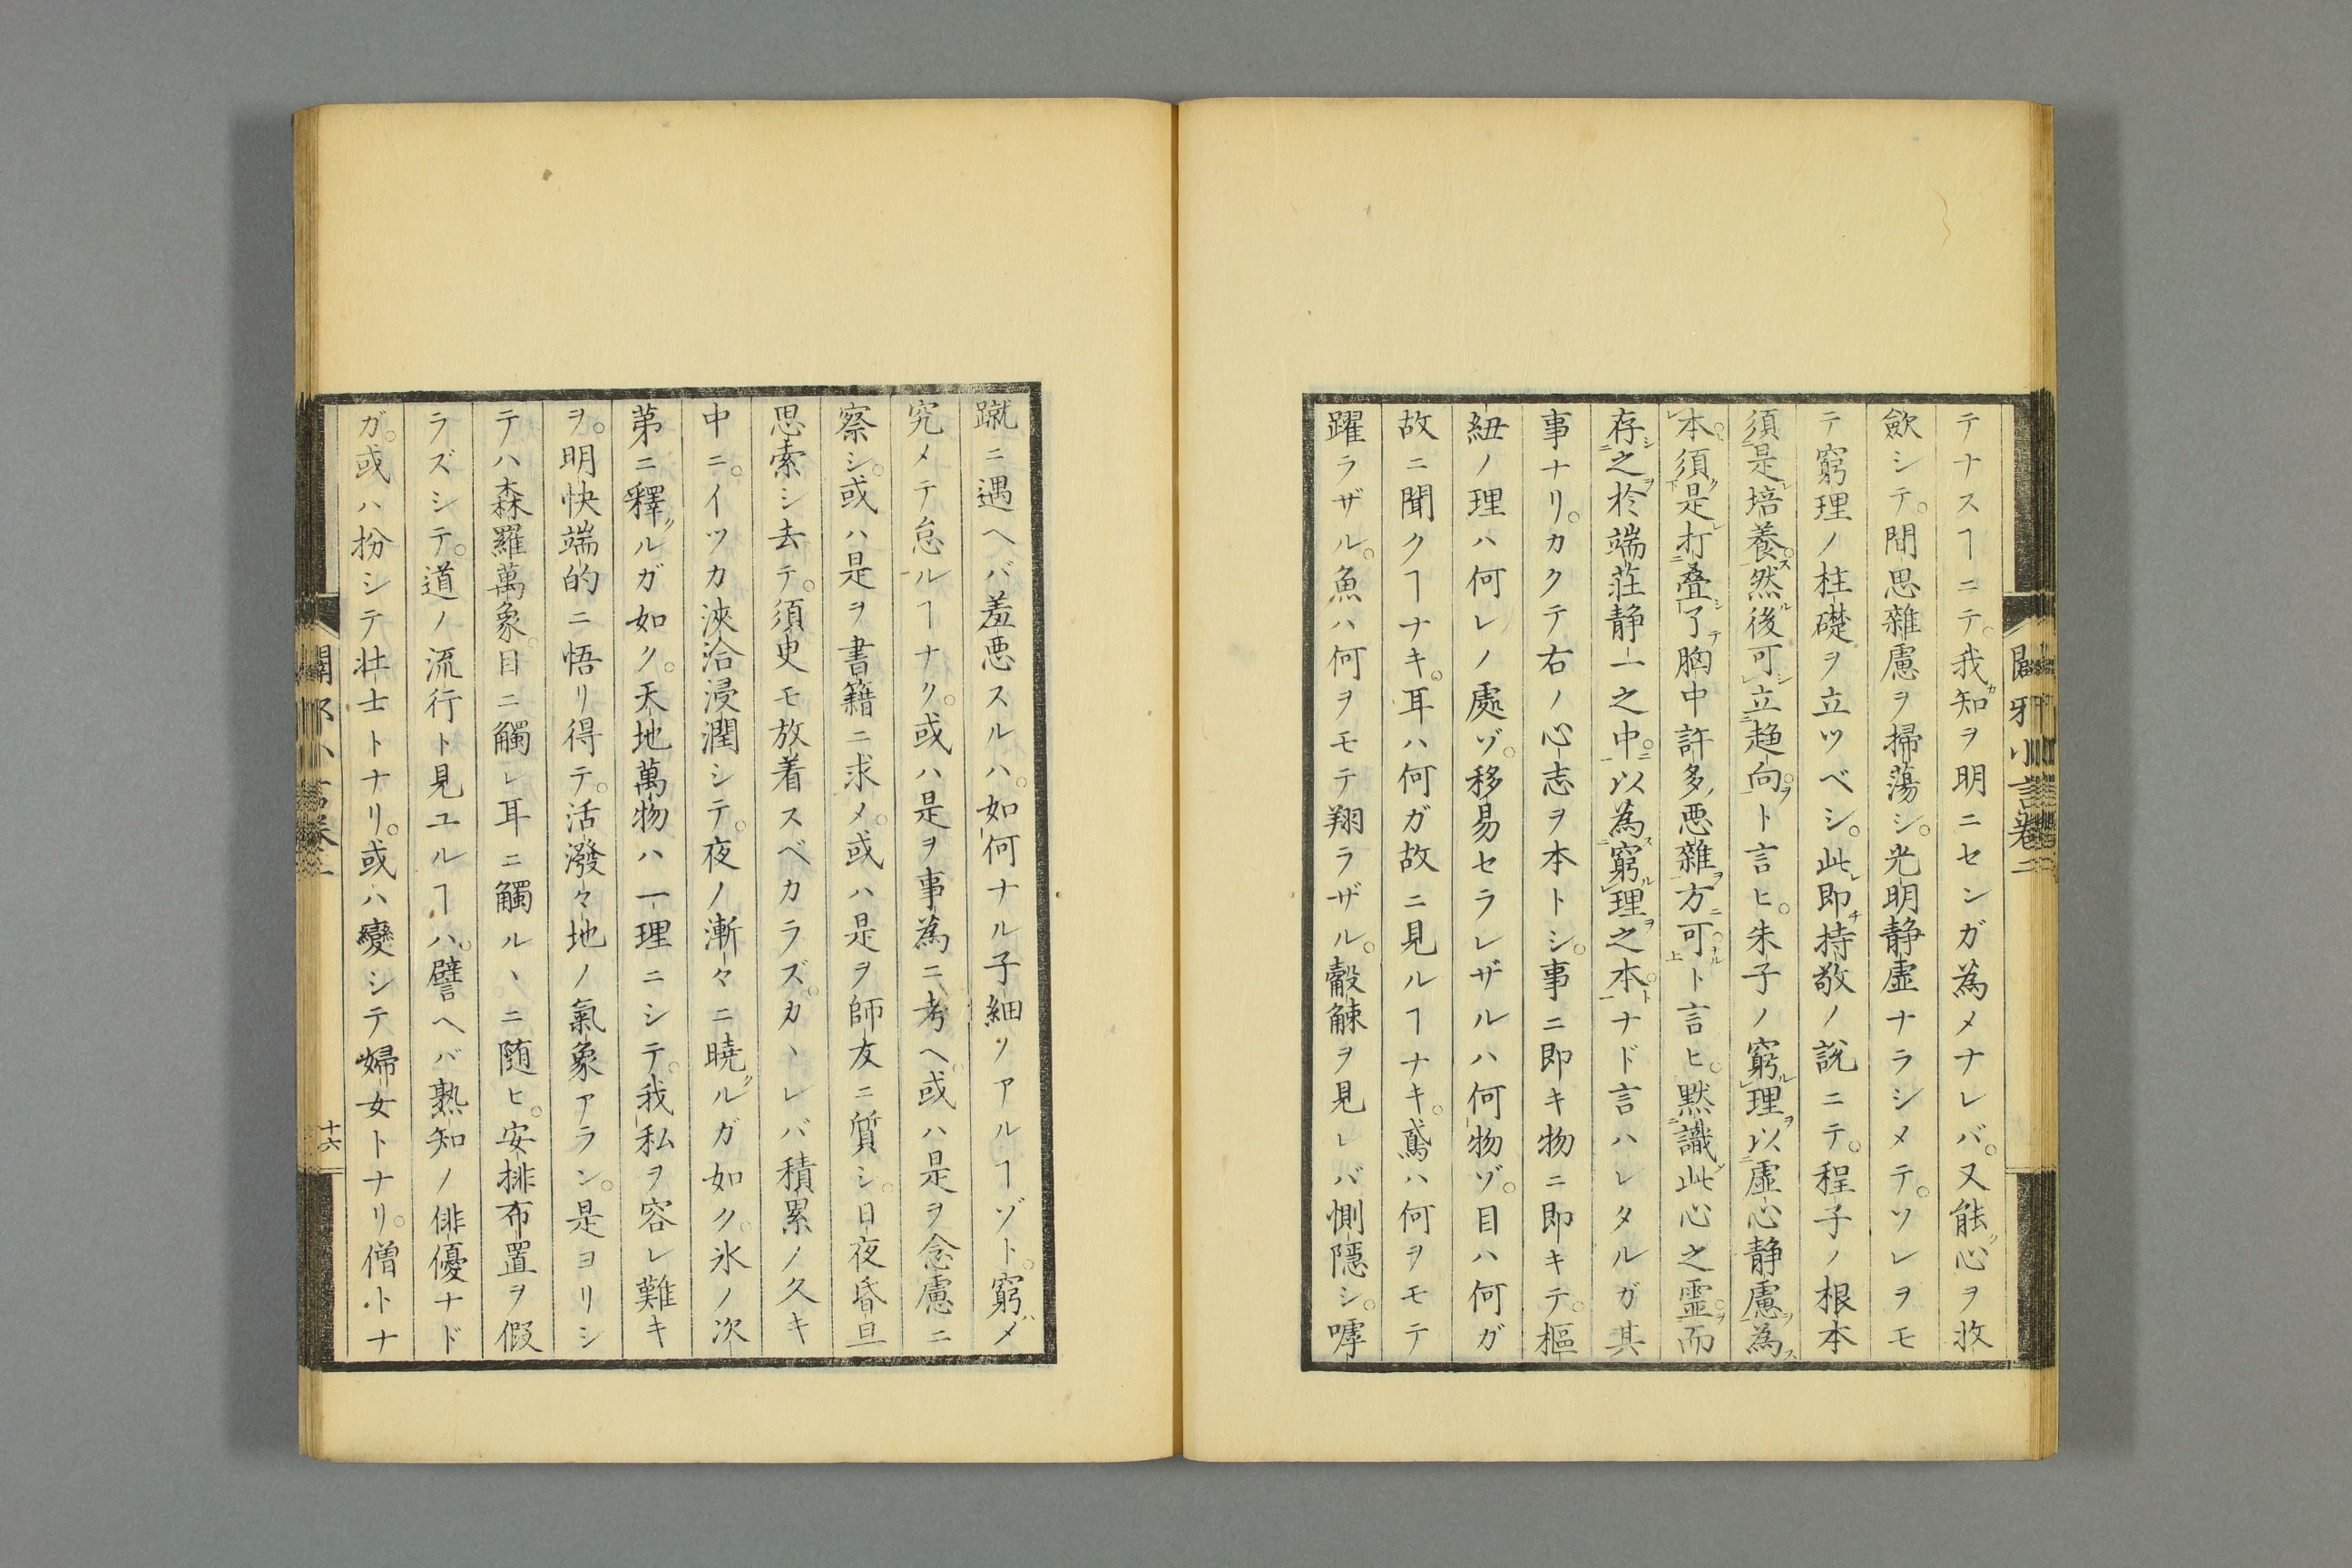 テナスヿニテ。我カ知ヲ明ニセンガ為メナレバ。又能ク心ヲ收
歛シテ。間思雜慮ヲ掃蕩シ。光明靜虛ナラシメテ。ソレヲモ
テ窮理ノ柱礎ヲ立ツベシ。此レ即チ持敬ノ說ニテ。程子ノ根本
須是培養。然後可立趨向。ト言ヒ。朱子ノ窮理以虛心靜慮為
本。須是打疊了胸中許多惡雜方可。ト言ヒ。默識此心之霊。而
存之於端莊静一之中。以為窮理之本。ナド言ハレタルガ其
事ナリ。カクテ右ノ心志ヲ本トシ。事ニ即キ物ニ即キテ。樞
紐ノ理ハ何レノ處ゾ。移易セラレザルハ何物ゾ。目ハ何ガ
故ニ聞クヿナキ。耳ハ何ガ故ニ見ルヿナキ。鳶ハ何ヲモテ
躍ラザル。魚ハ何ヲモテ翔ラザル。觳觫ヲ見レバ惻隱シ。嘑
闢邪小言卷二
蹴ニ遇ヘバ羞惡スルハ。如何ナル子細ノアルヿゾト。窮ハメ
究メテ怠ルヿナク。或ハ是ヲ事為ニ考ヘ。或ハ是ヲ念慮ニ
察シ。或ハ是ヲ書籍ニ求メ。或ハ是ヲ師友ニ質シ。日夜昏旦
思索シ去テ。須臾モ放着スベカラズ。カヽレバ積累ノ久キ
中ニ。イツカ浹洽浸潤シテ。夜ノ漸々ニ曉クルガ如ク。氷ノ次
第ニ釋クルガ如ク。天地萬物ハ一理ニシテ。我私ヲ容レ難キ
ヲ。明快端的ニ悟リ得テ。活潑々地ノ氣象アラン。是ヨリシ
テハ森羅萬象。目ニ觸レ耳ニ觸ルヽニ随ヒ。安排布置ヲ假
ラズシテ。道ノ流行ト見ユルヿハ。譬ヘバ熟知ノ俳優ナド
ガ。或ハ扮シテ壮士トナリ。或ハ變シテ婦女トナリ。僧トナ
十六